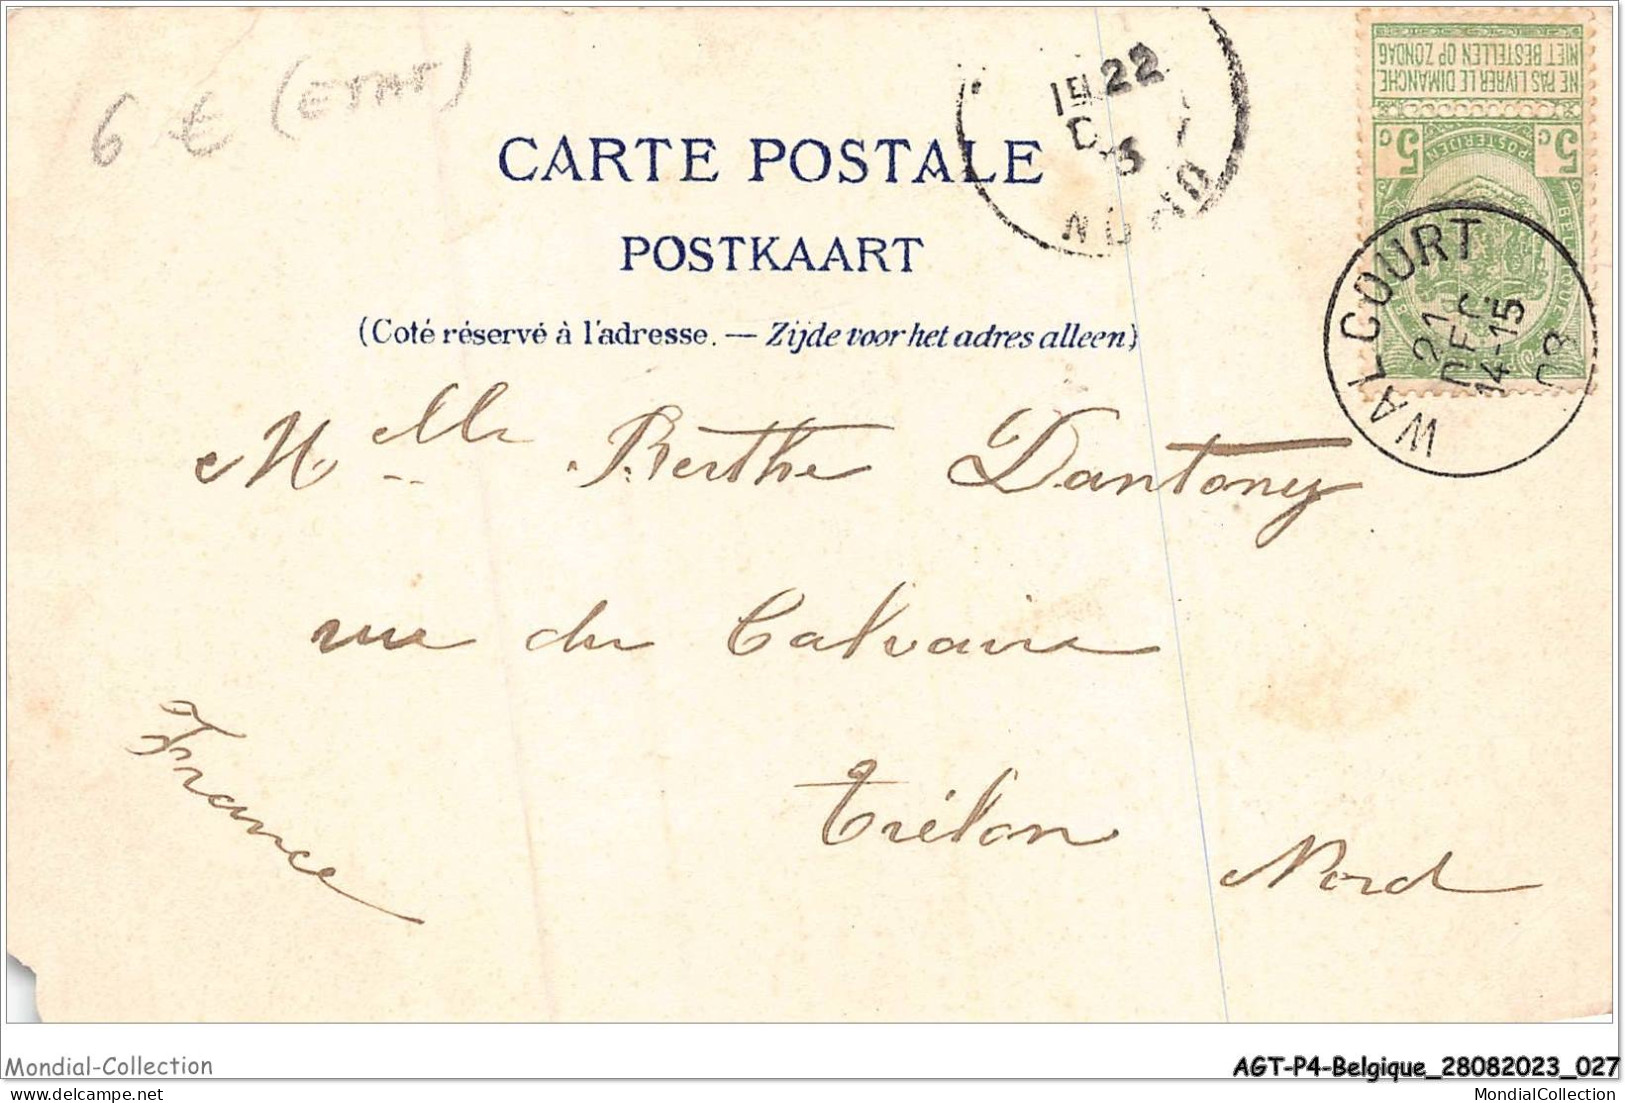 6 € (ETAT)
1922
D
3
NORD
NE PAS LIVRER LE DIMANCHE
NIET BESTELLEN OP ZONDAG
5 c 5 c
POSTERIJEN
BELGIQUE
WALCOURT
21
DEC
14-15
03
CARTE POSTALE
POSTKAART
(Coté réservé à l'adresse. — Zijde voor het adres alleen)
Melle Berthe Dantony
rue du Calvaire
Trélon
Nord
France
Mondial-Collection
AGT-P4-Belgique_28082023_027
delcampe.net
MondialCollection